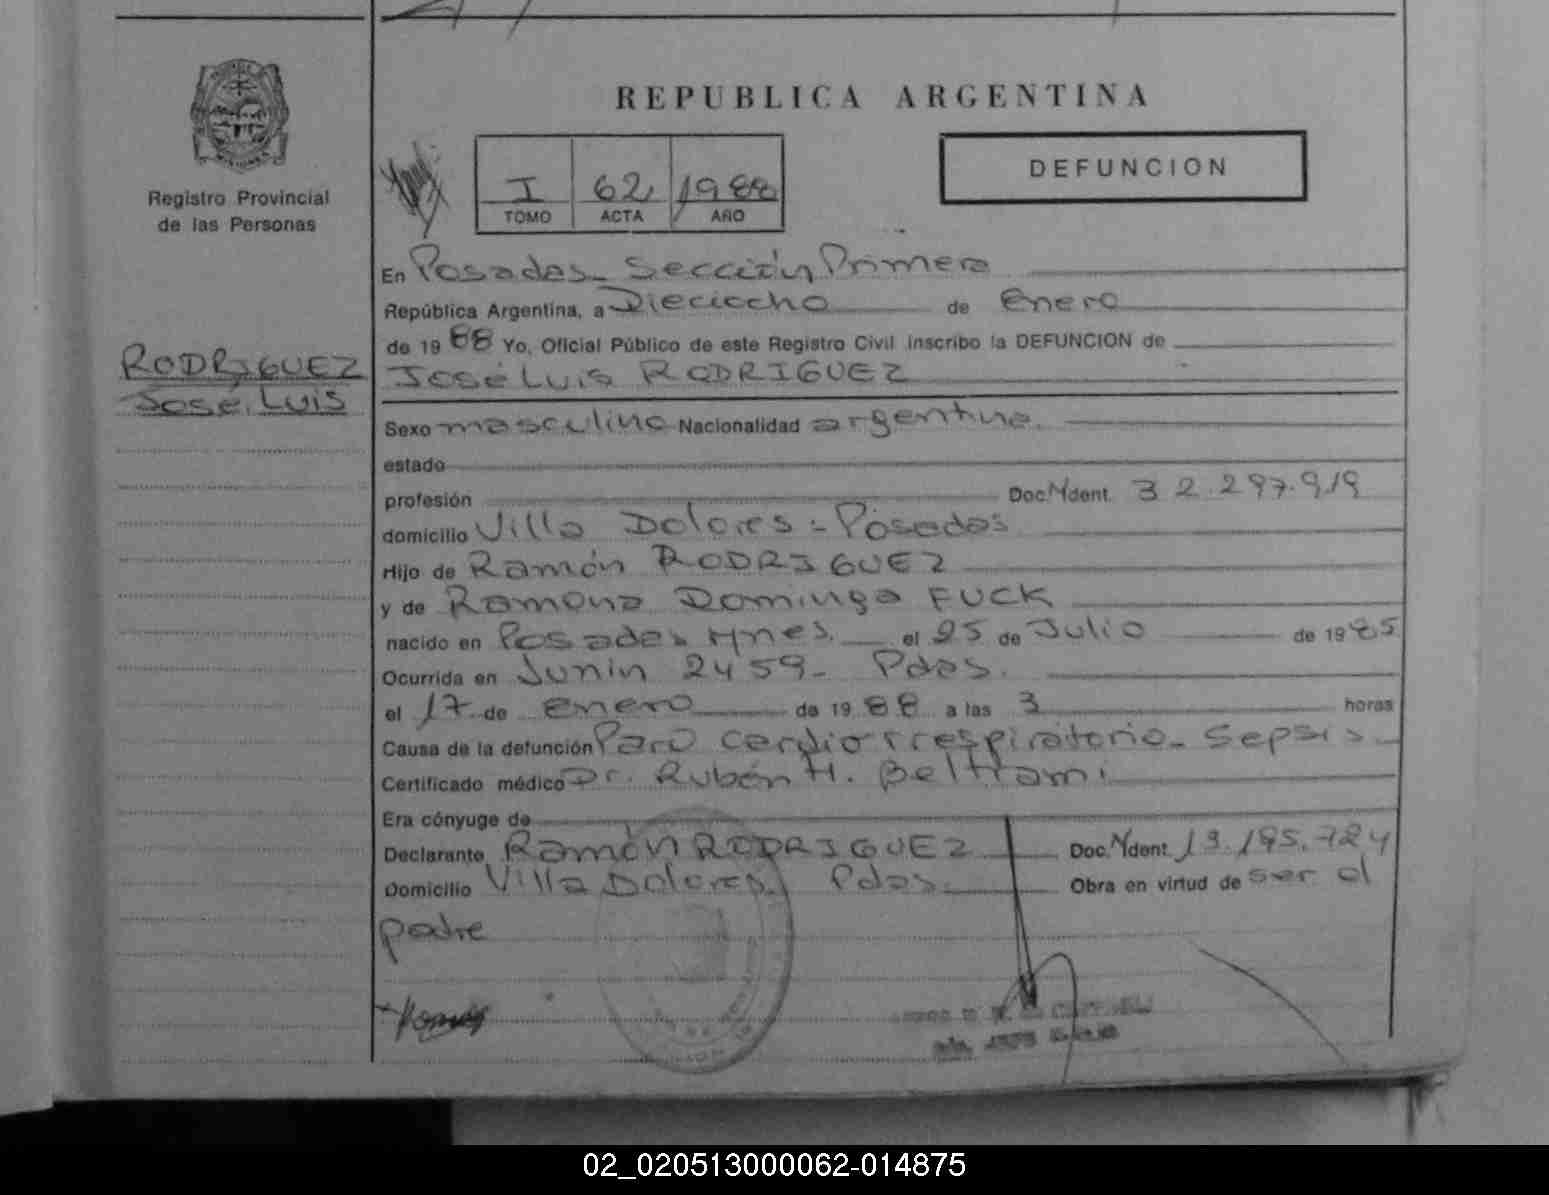 REPUBLICA ARGENTINA
Registro Provincial
de las Personas
I 62 1988
TOMO ACTA AÑO
DEFUNCION
En Posadas - Sección Primera
República Argentina, a Dieciocho de Enero
de 1988 Yo, Oficial Público de este Registro Civil inscribo la DEFUNCION de
RODRIGUEZ
José Luis
José Luis RODRIGUEZ
Sexo masculino Nacionalidad argentina.
estado
profesión Doc. Ident. 32.297.919
domicilio Villa Dolores - Posadas
Hijo de Ramón RODRIGUEZ
y de Ramona Dominga FUCK
nacido en Posadas Mnes. el 25 de Julio de 1985
Ocurrida en Junin 2459 - Pdas.
el 17 de enero de 1988 a las 3 horas
Causa de la defunción Paro cardiorrespiratorio - Sepsis -
Certificado médico Dr. Rubén H. Beltrami
Era cónyuge de
Declarante Ramón RODRIGUEZ Doc. Ident. 13.195.724
Domicilio Villa Dolores. Pdas. Obra en virtud de ser el
padre
02_020513000062-014875